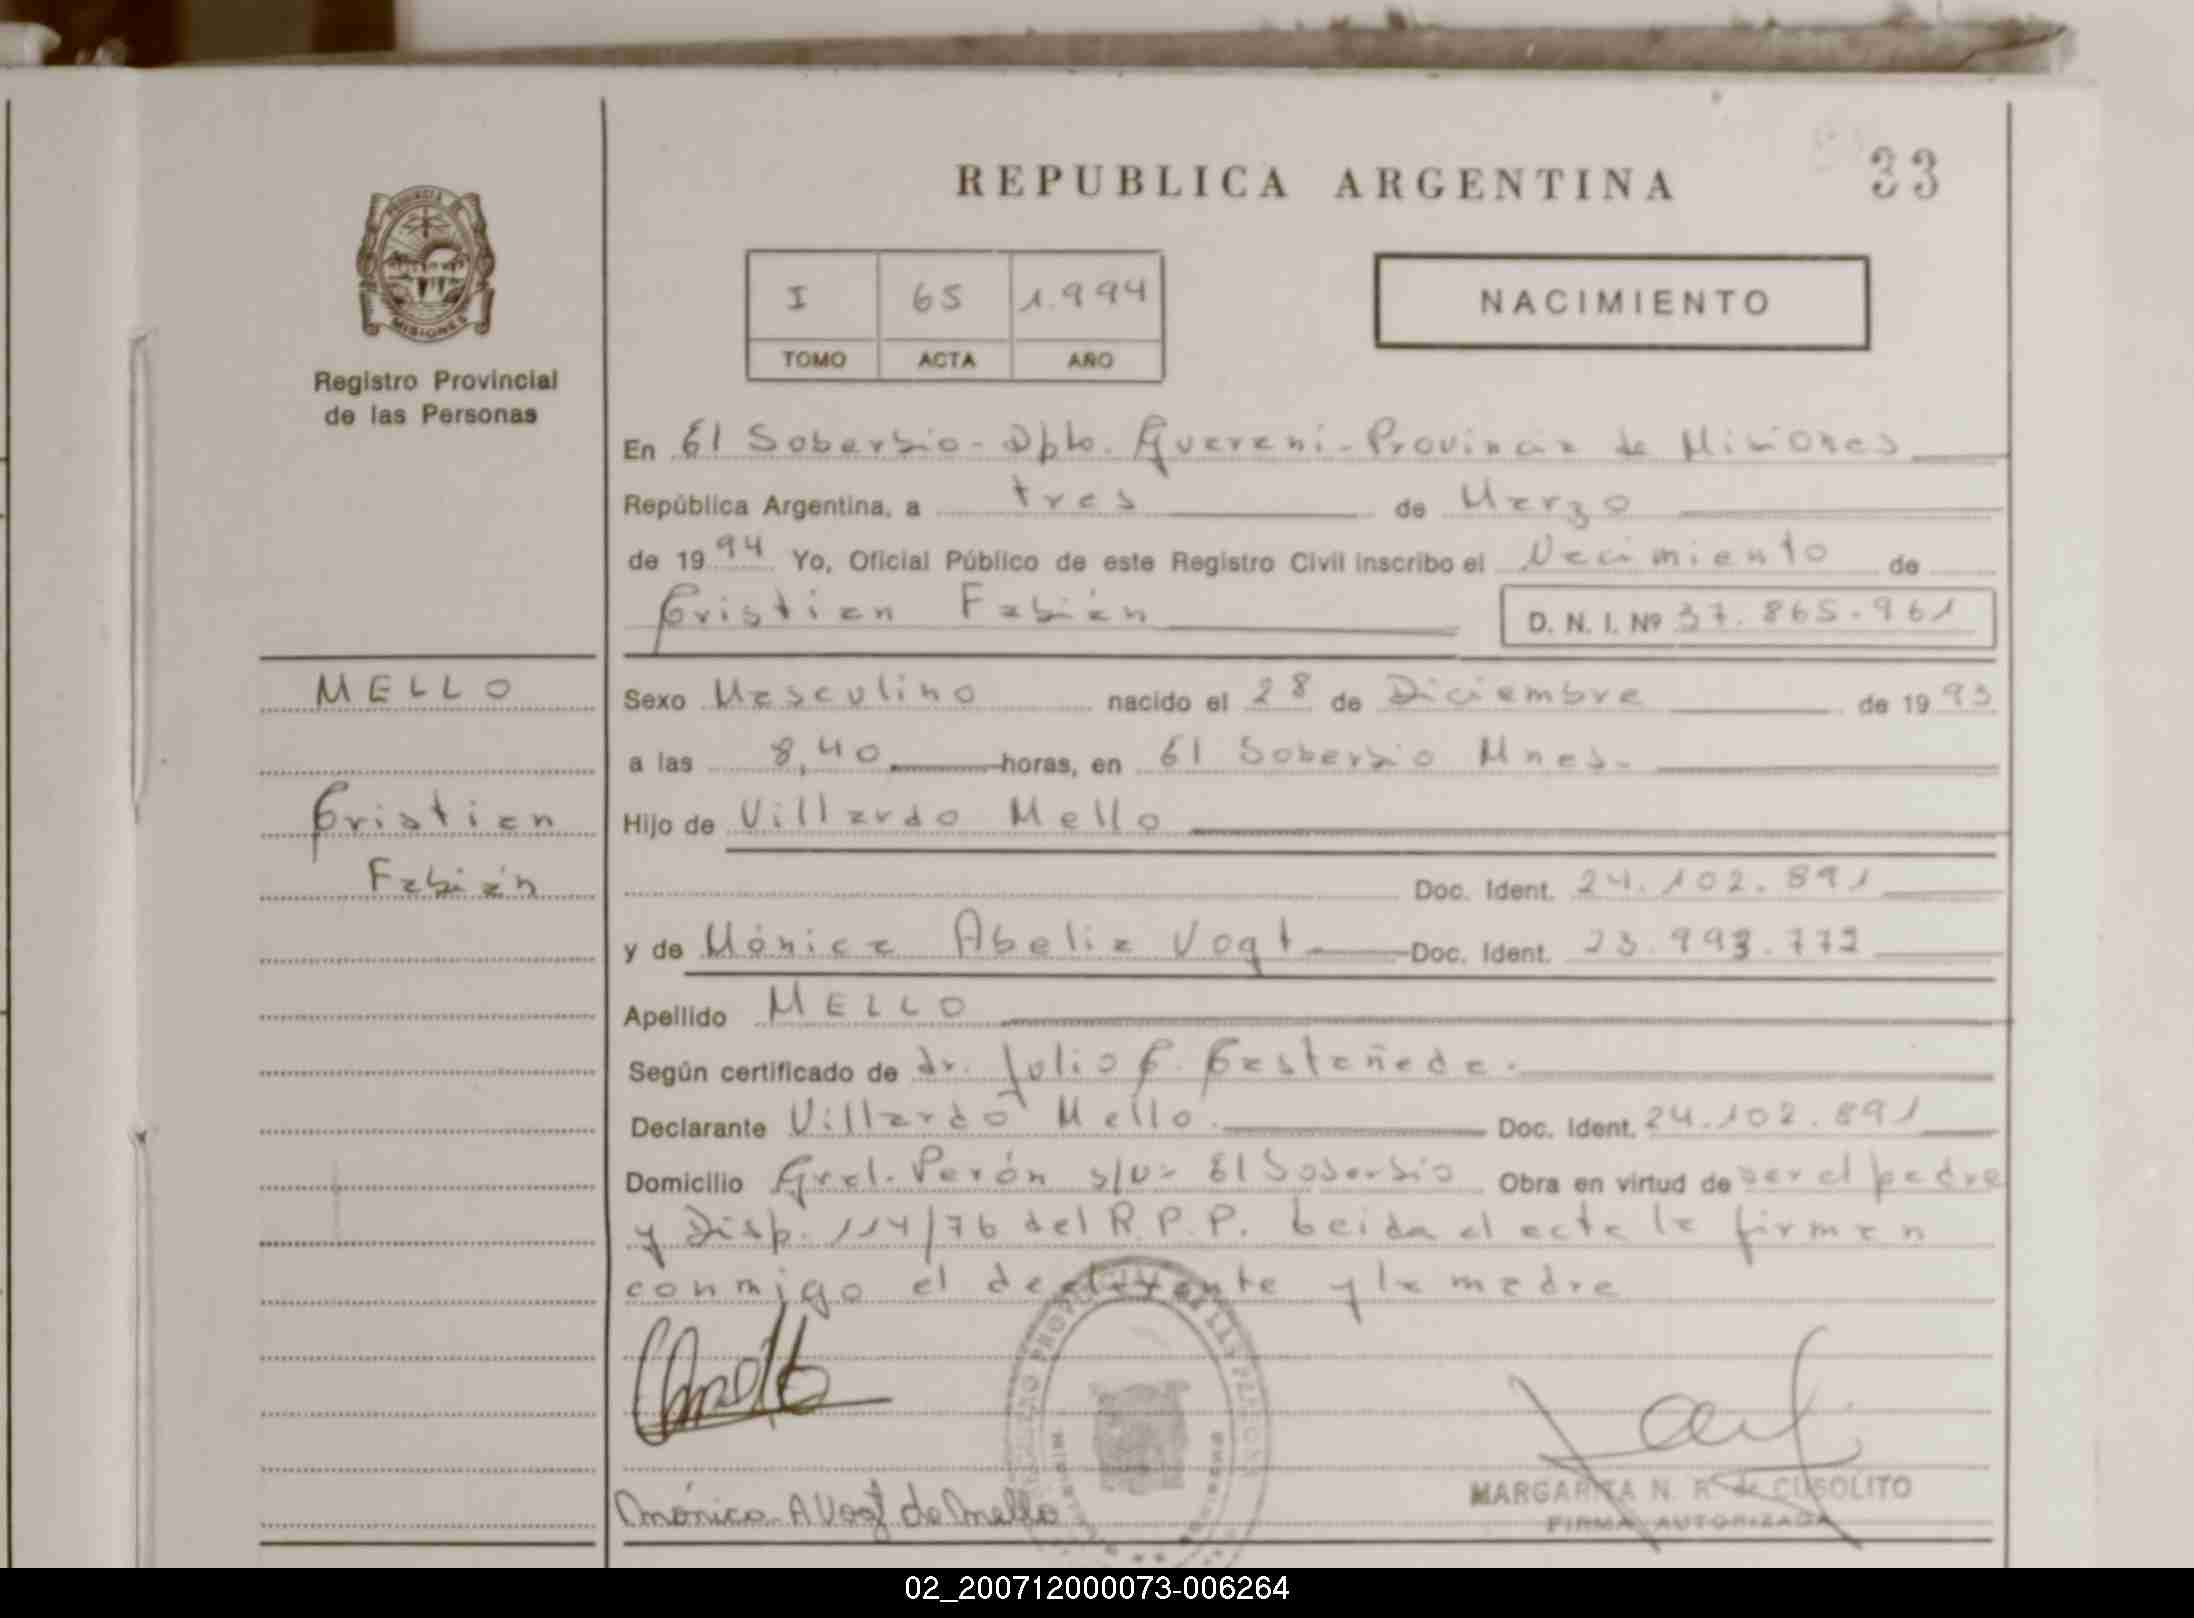 REPUBLICA ARGENTINA
33
PROVINCIA DE
MISIONES
Registro Provincial
de las Personas
I 65 1.994
TOMO ACTA AÑO
NACIMIENTO
En El Soberbio - Dpto. Guarani - Provincia de Misiones
República Argentina, a tres de Marzo
de 1994 Yo, Oficial Público de este Registro Civil inscribo el Nacimiento de
Cristian Fabián
D. N. I. Nº 37.865.961
MELLO
Cristian
Fabián
Sexo Masculino nacido el 28 de Diciembre de 1993
a las 8,40 horas, en El Soberbio Mnes.
Hijo de Villardo Mello
Doc. Ident. 24.102.891
y de Mónica Abelia Vogt Doc. Ident. 23.993.772
Apellido MELLO
Según certificado de dr. Julio C. Castañeda.
Declarante Villardo Mello. Doc. Ident. 24.102.891
Domicilio Gral. Perón s/nº El Soberbio Obra en virtud de ser el padre
y Disp. 114/76 del R.P.P. Leida el acta la firman
conmigo el declarante y la madre
Mónica A Vogt de Mello
MARGARITA N. R. de CUSOLITO
FIRMA AUTORIZADA
02_200712000073-006264